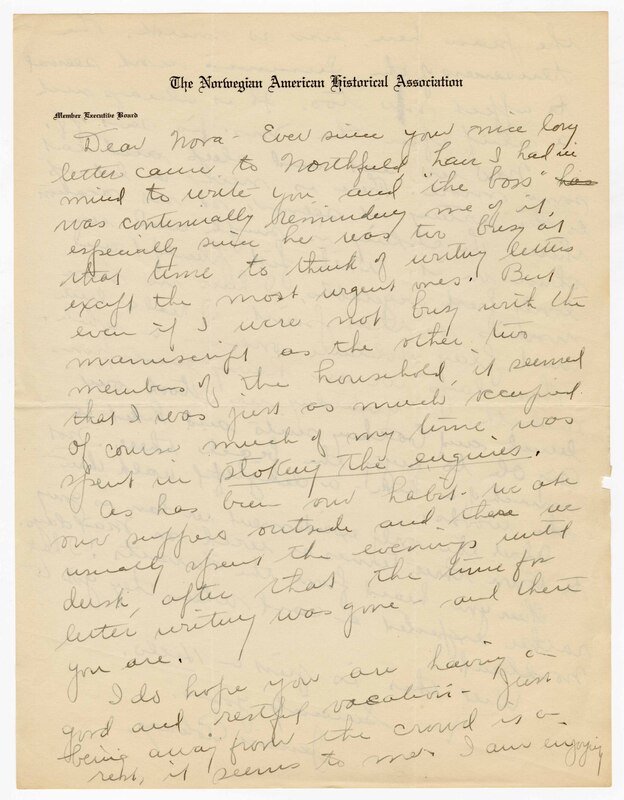 The Norwegian American Historical Association
Member Executive Board
Dear Nora - Ever since your nice long
letter came to Northfield, have I had in
mind to write you and "the boss" has
was continually reminding me of it,
especially since he was too busy at
that time to think of writing letters
except the most urgent ones. But
even if I were not busy with the
manuscript as the other two
members of the household, it seemed
that I was just as much occupied.
Of course much of my time was
spent in stoking the engines.
As has been our habit - we ate
our suppers outside and there we
usually spent the evenings until
dusk, after that the time for
letter writing was gone - and there
you are.
I do hope you are having a
good and restful vacation - Just
being away from the crowd is a
rest, it seems to me. I am enjoying